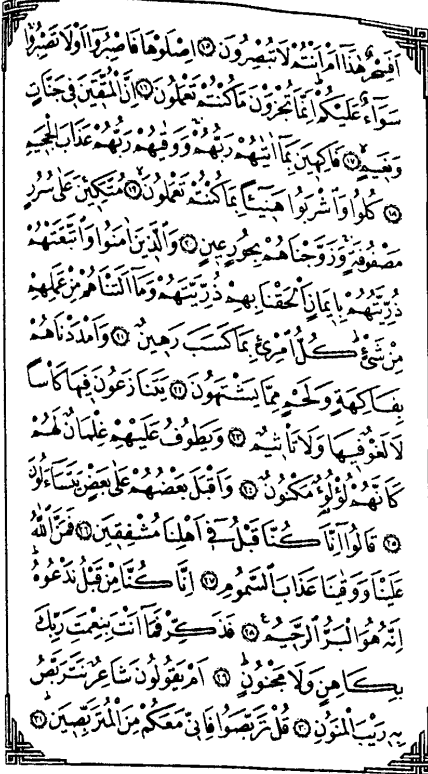 اَفَسِحْرٌ هٰذَٓا اَمْ اَنْتُمْ لَا تُبْصِرُونَ ﴿١٥﴾ اِصْلَوْهَا فَاصْبِرُٓوا اَوْ لَا تَصْبِرُوا
سَوَٓاءٌ عَلَيْكُمْ اِنَّمَا تُجْزَوْنَ مَا كُنْتُمْ تَعْمَلُونَ ﴿١٦﴾ اِنَّ الْمُتَّقِينَ فِى جَنَّاتٍ
وَنَعِيمٍ ﴿١٧﴾ فَاكِهِينَ بِمَٓا اٰتٰيهُمْ رَبُّهُمْ وَوَقٰيهُمْ رَبُّهُمْ عَذَابَ الْجَحِيمِ
﴿١٨﴾ كُلُوا وَاشْرَبُوا هَنِٓيـًٔا بِمَا كُنْتُمْ تَعْمَلُونَ ﴿١٩﴾ مُتَّكِـِٔينَ عَلٰى سُرُرٍ
مَصْفُوفَةٍ وَزَوَّجْنَاهُمْ بِحُورٍ عِينٍ ﴿٢٠﴾ وَالَّذِينَ اٰمَنُوا وَاتَّبَعَتْهُمْ
ذُرِّيَّتُهُمْ بِاِيمَانٍ اَلْحَقْنَا بِهِمْ ذُرِّيَّتَهُمْ وَمَٓا اَلَتْنَاهُمْ مِنْ عَمَلِهِمْ
مِنْ شَىْءٍ كُلُّ امْرِئٍ بِمَا كَسَبَ رَهِينٌ ﴿٢١﴾ وَاَمْدَدْنَاهُمْ
بِفَاكِهَةٍ وَلَحْمٍ مِمَّا يَشْتَهُونَ ﴿٢٢﴾ يَتَنَازَعُونَ فِيهَا كَاْسًا
لَا لَغْوٌ فِيهَا وَلَا تَاْثِيمٌ ﴿٢٣﴾ وَيَطُوفُ عَلَيْهِمْ غِلْمَانٌ لَهُمْ
كَاَنَّهُمْ لُؤْلُؤٌ مَكْنُونٌ ﴿٢٤﴾ وَاَقْبَلَ بَعْضُهُمْ عَلٰى بَعْضٍ يَتَسَٓاءَلُونَ
﴿٢٥﴾ قَالُٓوا اِنَّا كُنَّا قَبْلُ فِٓى اَهْلِنَا مُشْفِقِينَ ﴿٢٦﴾ فَمَنَّ اللّٰهُ
عَلَيْنَا وَوَقٰينَا عَذَابَ السَّمُومِ ﴿٢٧﴾ اِنَّا كُنَّا مِنْ قَبْلُ نَدْعُوهُ
اِنَّهُ هُوَ الْبَرُّ الرَّحِيمُ ﴿٢٨﴾ فَذَكِّرْ فَمَٓا اَنْتَ بِنِعْمَتِ رَبِّكَ
بِكَاهِنٍ وَلَا مَجْنُونٍ ﴿٢٩﴾ اَمْ يَقُولُونَ شَاعِرٌ نَتَرَبَّصُ
بِهِ رَيْبَ الْمَنُونِ ﴿٣٠﴾ قُلْ تَرَبَّصُوا فَاِنِّى مَعَكُمْ مِنَ الْمُتَرَبِّصِينَ ﴿٣١﴾